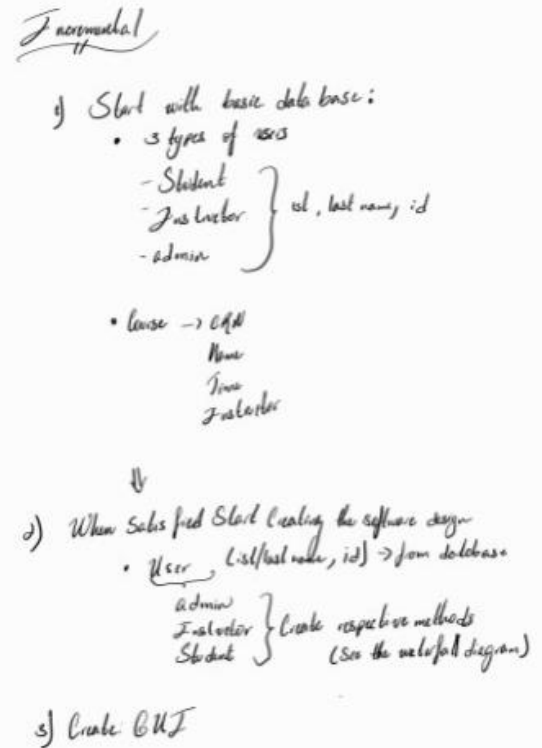 Incremental
1) Start with basic data base:
• 3 types of users
- Student
- Instructor
- admin
1st, last name, id
• Course -> CRN
Name
Time
Instructor
⇓
2) When Satisfied Start Creating the software design
• User (1st/last name, id) -> from database
admin
Instructor
Student
Create respective methods
(see the waterfall diagram)
3) Create GUI